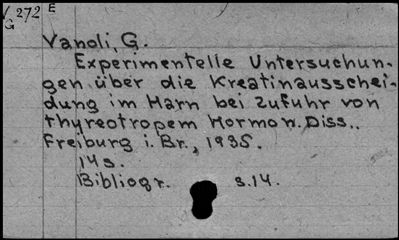 V 272 E
G
Vanoli, G.
Experimentelle Untersuchun-
gen über die Kreatinausschei-
dung im Harn bei Zufuhr von
thyreotropem Hormon. Diss..
Freiburg i. Br., 1935.
14s.
Bibliogr. s.14.